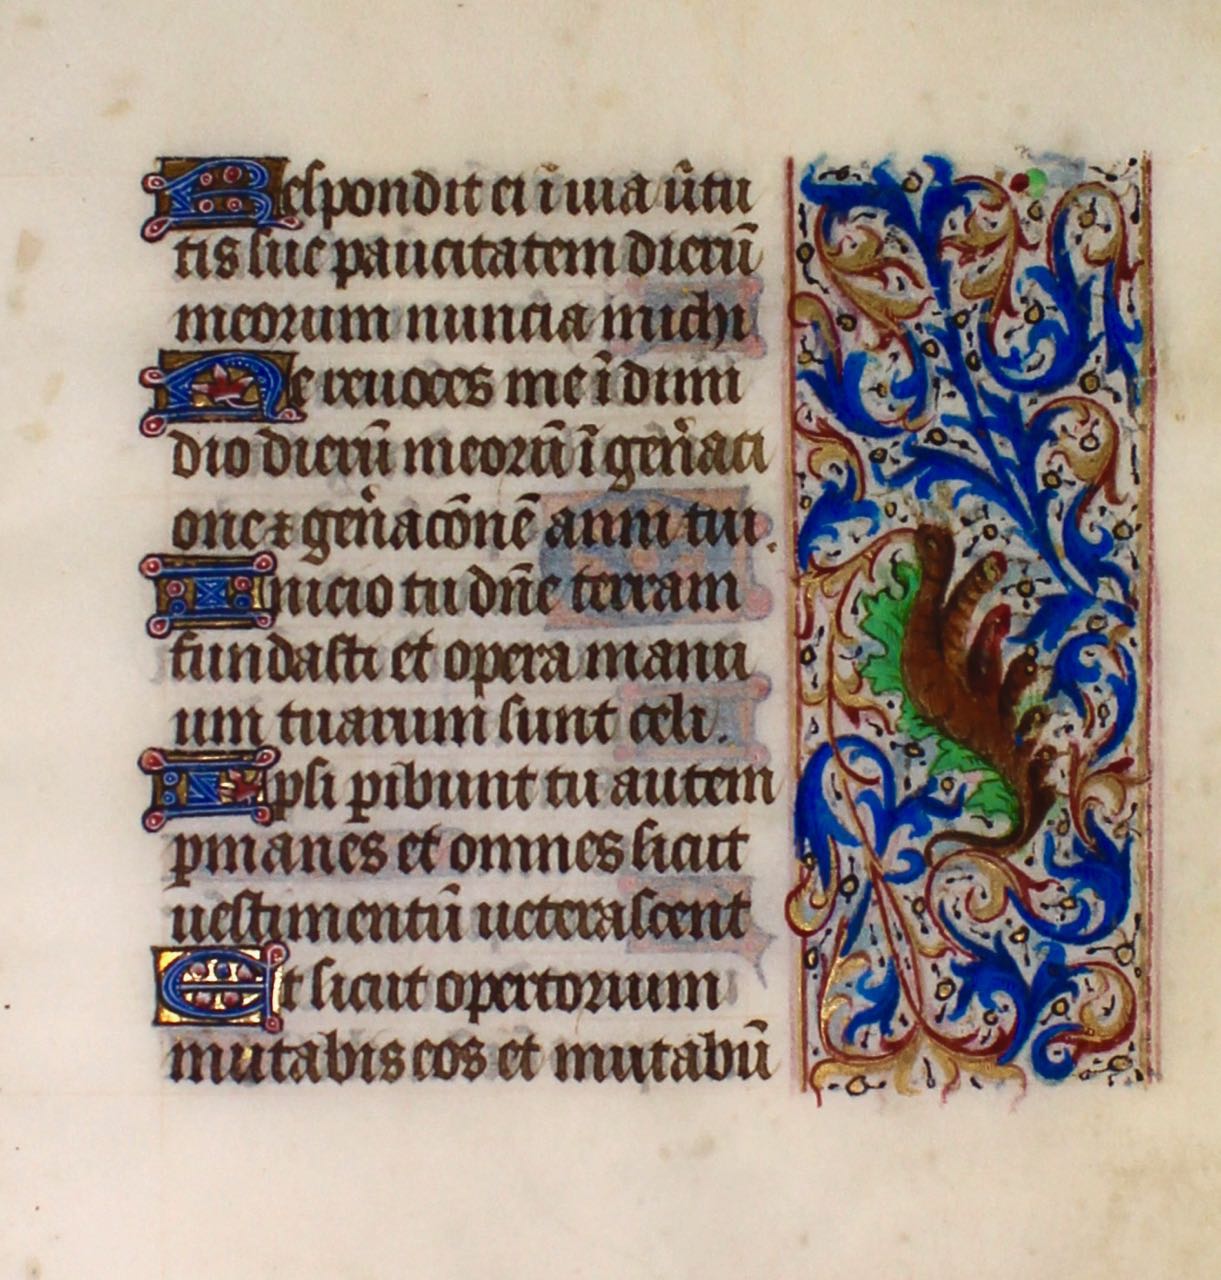 Respondit ei ī uia ūtu
tis sue paucitatem dierū
meorum nuncia michi
Ne reuoces me ī dimi
dio dierū meorū ī gen̄aci
one ⁊ gen̄acōnē anni tui.
Inicio tu dn̄e terram
fundasti et opera manu
um tuarum sunt celi.
Ipsi ꝑibunt tu autem
ꝑmanes et omnes sicut
uestimentū ueterascent
Et sicut opertorium
mutabis eos et mutabū